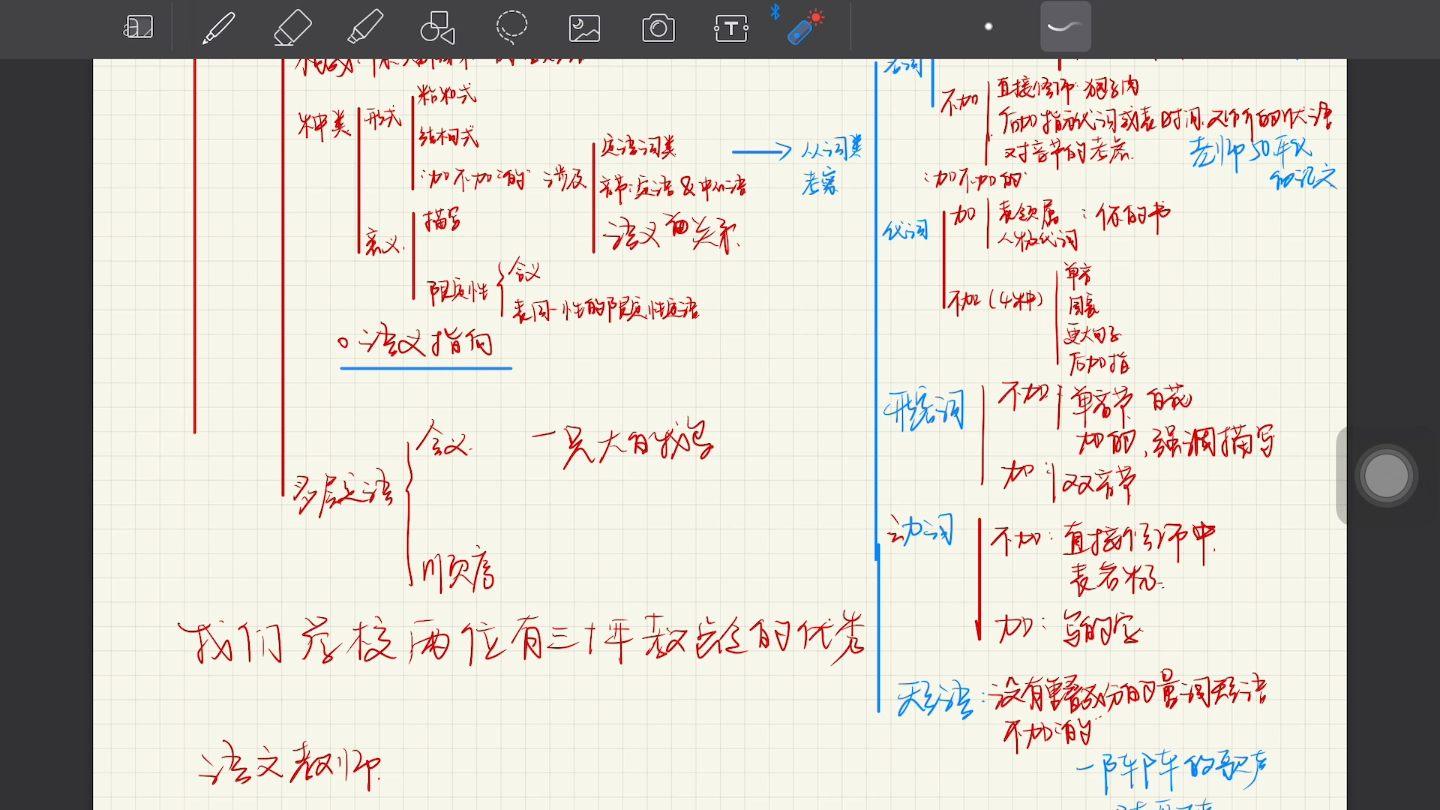 种类
形式
粘和式
结构式
"加不加"的" 涉及
定语词类
音节:定语&中心语
语义面关系
从词类
考察
意义
描写
限定性
含义
表同一性的限定性定语
语义指向
多层定语
含义
一只大的钱包
顺序
我们学校两位有三十年教龄的优秀
语文教师
名词
不加
直接修饰
后加指示代词或表时间
对音节的考察
老师50年代
的论文
"加不加的"
代词
加
表领属 :你的书
人称代词
不加(4种)
单音
国家
更大句子
后加指
形容词
不加
单音节 白花
加的,强调描写
加:
双音节
动词
不加:直接修饰中
表名称
加:写的字
短语:
不加"的"
一阵阵的歌声